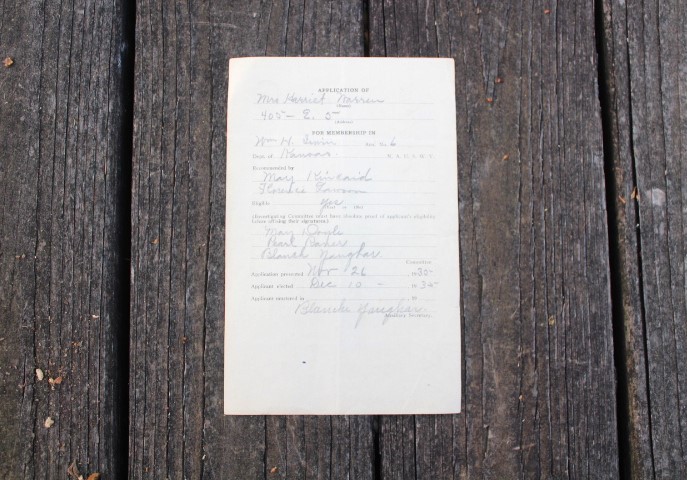 APPLICATION OF
Mrs Harriet Warren
(Name)
405 - E. 5
(Address)
FOR MEMBERSHIP IN
Wm H. Aux. No. 6
Dept. of Kansas. U. S. W. V.
Recommended by
May Kincaid
Florence Lawson
Eligible yes
(Yes or No)
(Investigating Committee must have absolute proof of applicant's eligibility
before affixing their signatures.)
May Doyle
Pearl Baker
Blanch
Committee
Application presented Nov 26 1935
Applicant elected Dec 10 - 1935
Applicant mustered in , 19
Blanche
Secretary.